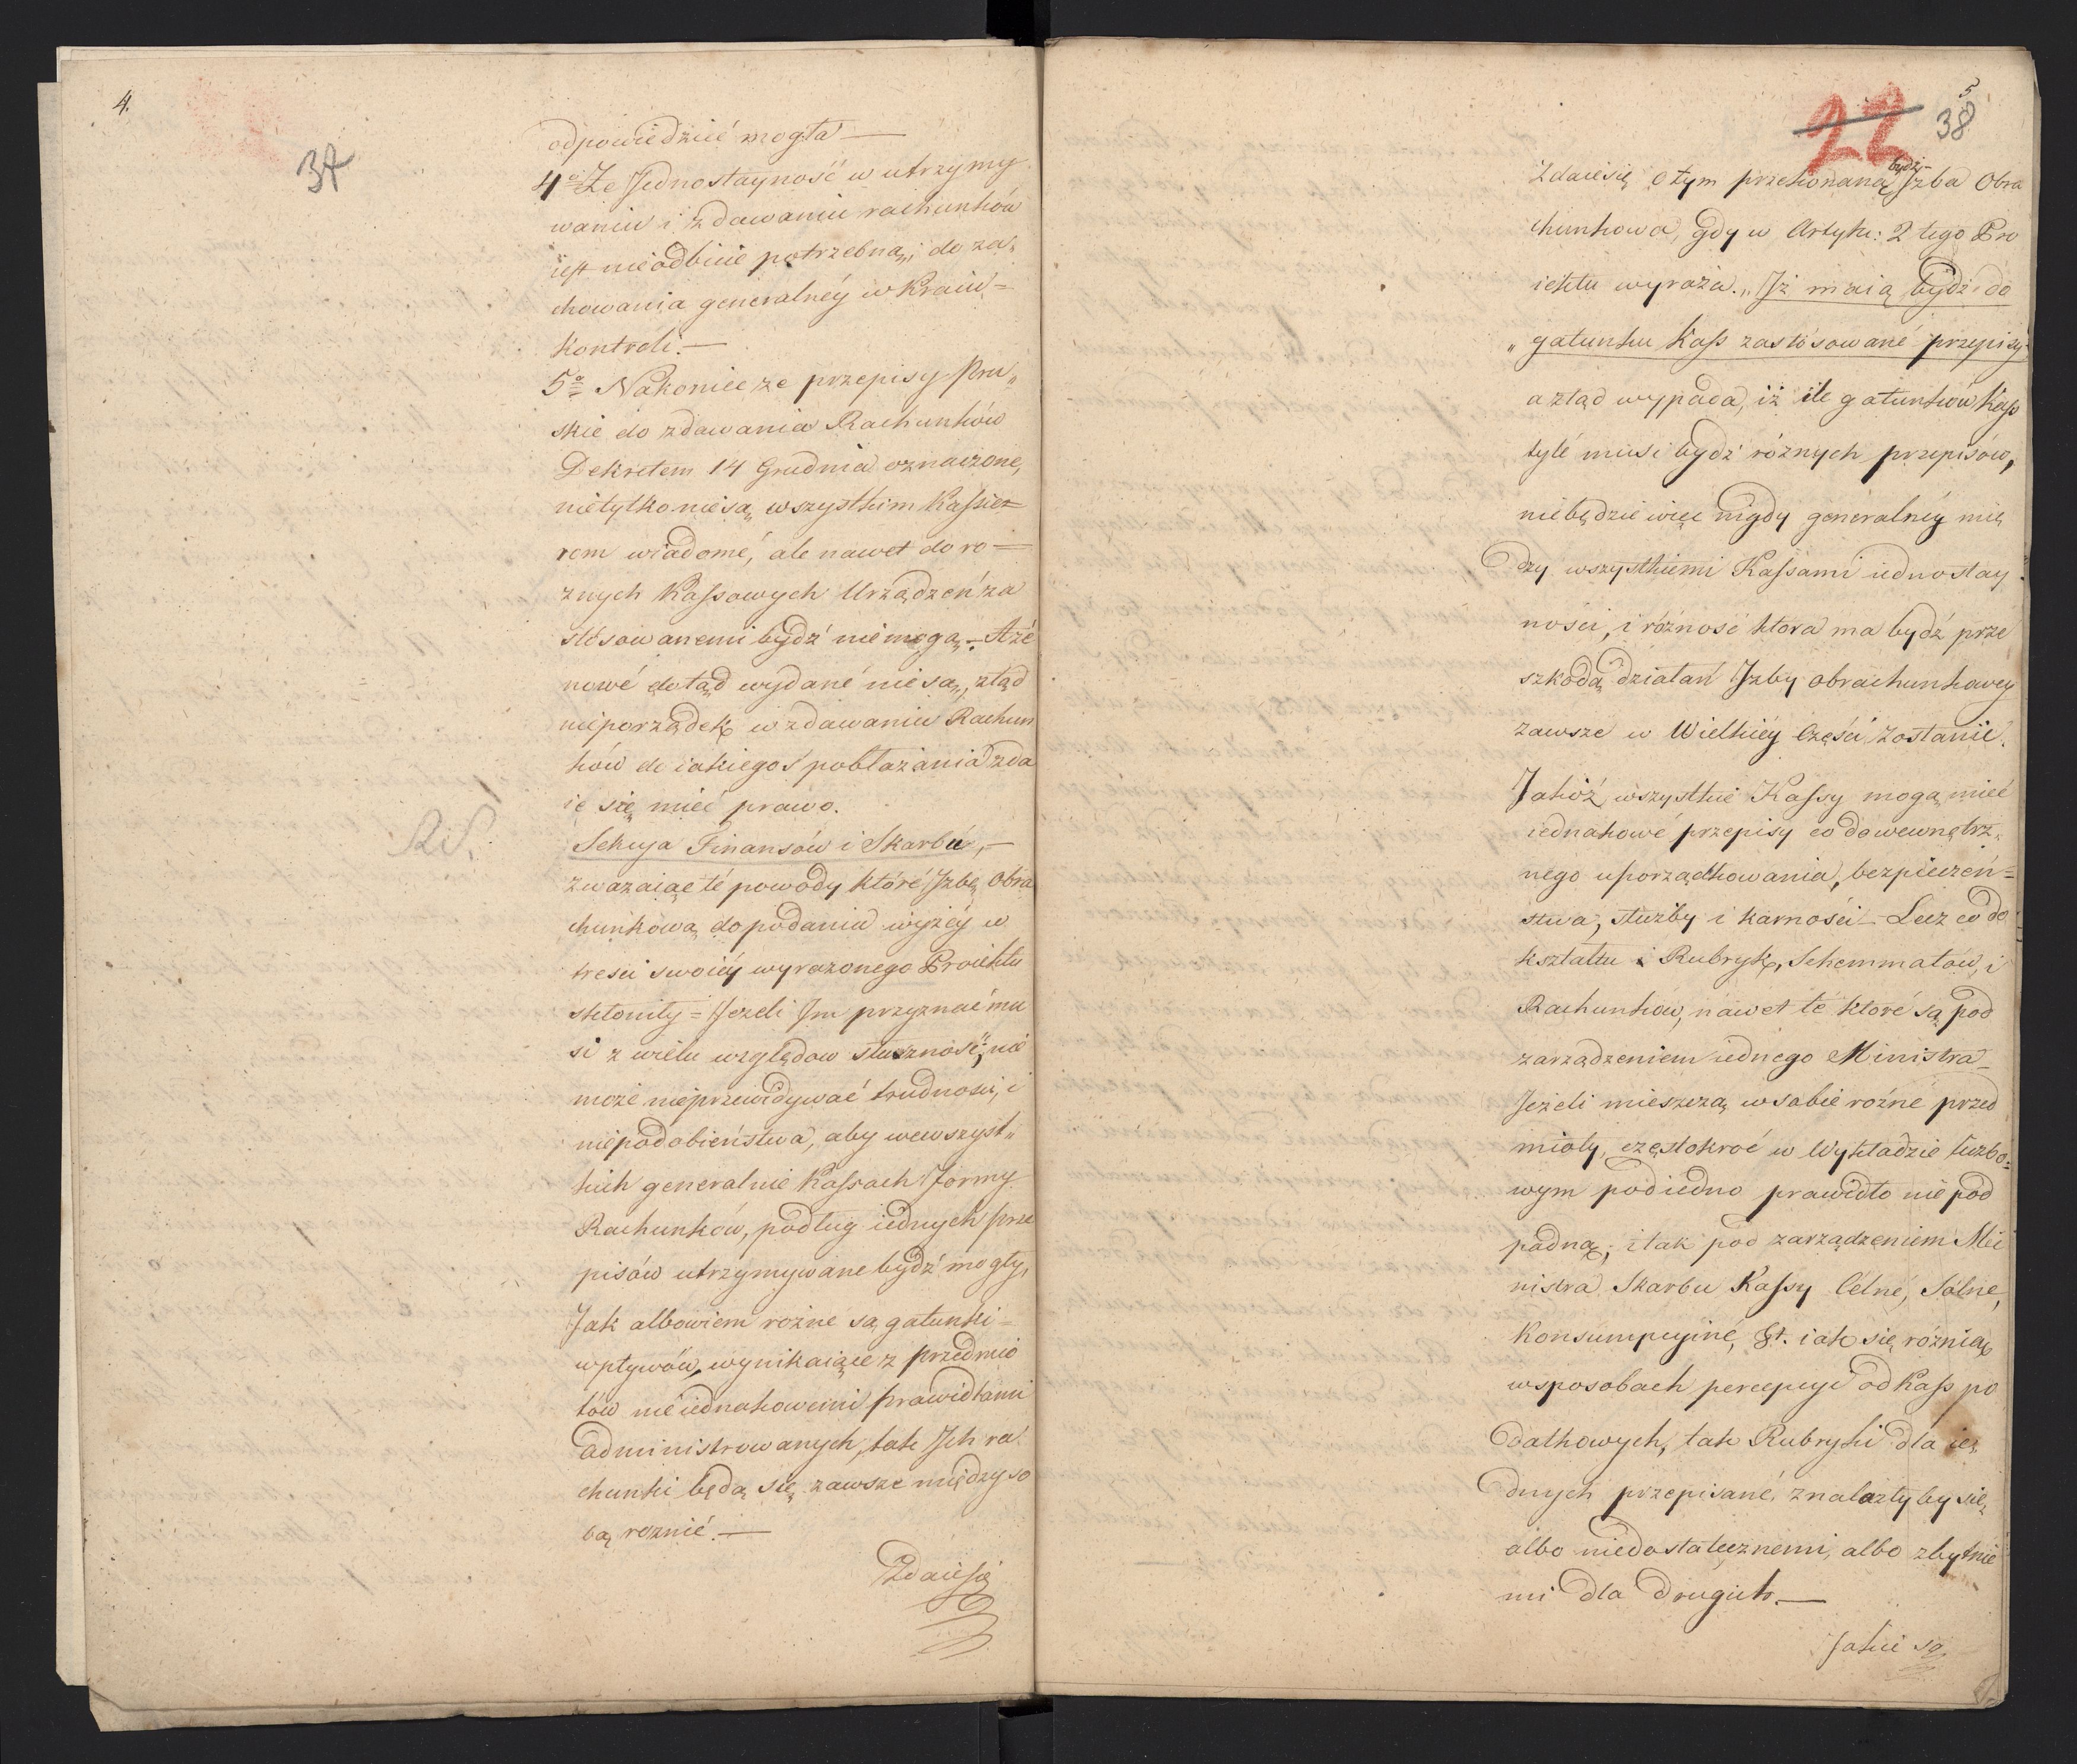 4.
37
odpowiedzieć mogła —
4º Że Jednostayność w utrzymy
waniu i zdawaniu rachunków
iest nieodbicie potrzebną, do za,
chowania generalnéy w Kraiu =
Kontroli. —
5º Nakoniec że przepisy Pru„
skie do zdawania Rachunków
Dekretem 14 Grudnia oznaczone,
nietylko nie są wszystkim Kassie=
rom wiadomé, ale nawet do ro=
znych Kassowych Urządzeń za
stósowanemi bydź nie mogą. – A że
nowé dotąd wydané nie są, ztąd
nieporządek w zdawaniu Rachun
ków do iakiegoś pobłażania zda
ie się mieć prawo.
Sekcya Finansów i Skarbu, —
zważaiąc té powody któré Jzbę Obra
chunkową do podania wyżéy w
treści swoiéy wyrażonego Proiektu
skłoniły = Jeżeli Jm przyznać mu
si z wielu względow słuszność, nie
może nieprzewidywać trudności, i
niepodobieństwa, aby we wszyst„
kich generalnie Kassach formy
Rachunków, podług iednych prze
pisów utrzymywane bydź mogły,
Jak albowiem rożne są gatunki =
wpływów, wynikaiące z przedmio
tów nie iednakowemi prawidłami
administrowanych, tak Jch ra
chunki będą się zawsze między so
bą roznić. —
Zdaie się
22
5
38
Zdaie się o tym przekonaną bydź Jzba Obra
chunkowa, gdy w Artyku: 2 tego Pro
iektu wyraża. „Jż maią bydź do
„gatunku Kass zastósowané przepisy
a ztąd wypada, iż ile gatunków Kass
tylé musi bydź różnych przepisów,
nie będzie więc nigdy generalnéy mię
dzy wszystkiemi Kassami iednostay
ności, i różność ktora ma bydź prze
szkodą działań Jzby obrachunkowey
zawsze w Wielkiéy Części zostanie.
Jakóż wszystkie Kassy mogą mieć
iednakowé przepisy co do wewnętrz„
nego uporządkowania, bezpieczeń=
stwa, służby i karności – Lecz co do
kształtu i Rubryk, Schemmatów, i
Rachunków, nawet té ktoré są pod
zarządzeniem iednego Ministra –
Jeżeli mieszczą w sobie rożné przed
mioty, częstokroć w Wykładzie liczbo=
wym pod iedno prawidło nie pod
padną; i tak pod zarządzeniem Mi
nistra Skarbu Kassy Celné, Solné,
Konsumpcyiné, &t. iak się różnią
w sposobach percepcyi od Kass po
datkowych, tak Rubryki dla ie„
dnych przepisané, znalazły by się
albo niedostatecznemi, albo zbytnie
mi dla drugich. —
Jakie są